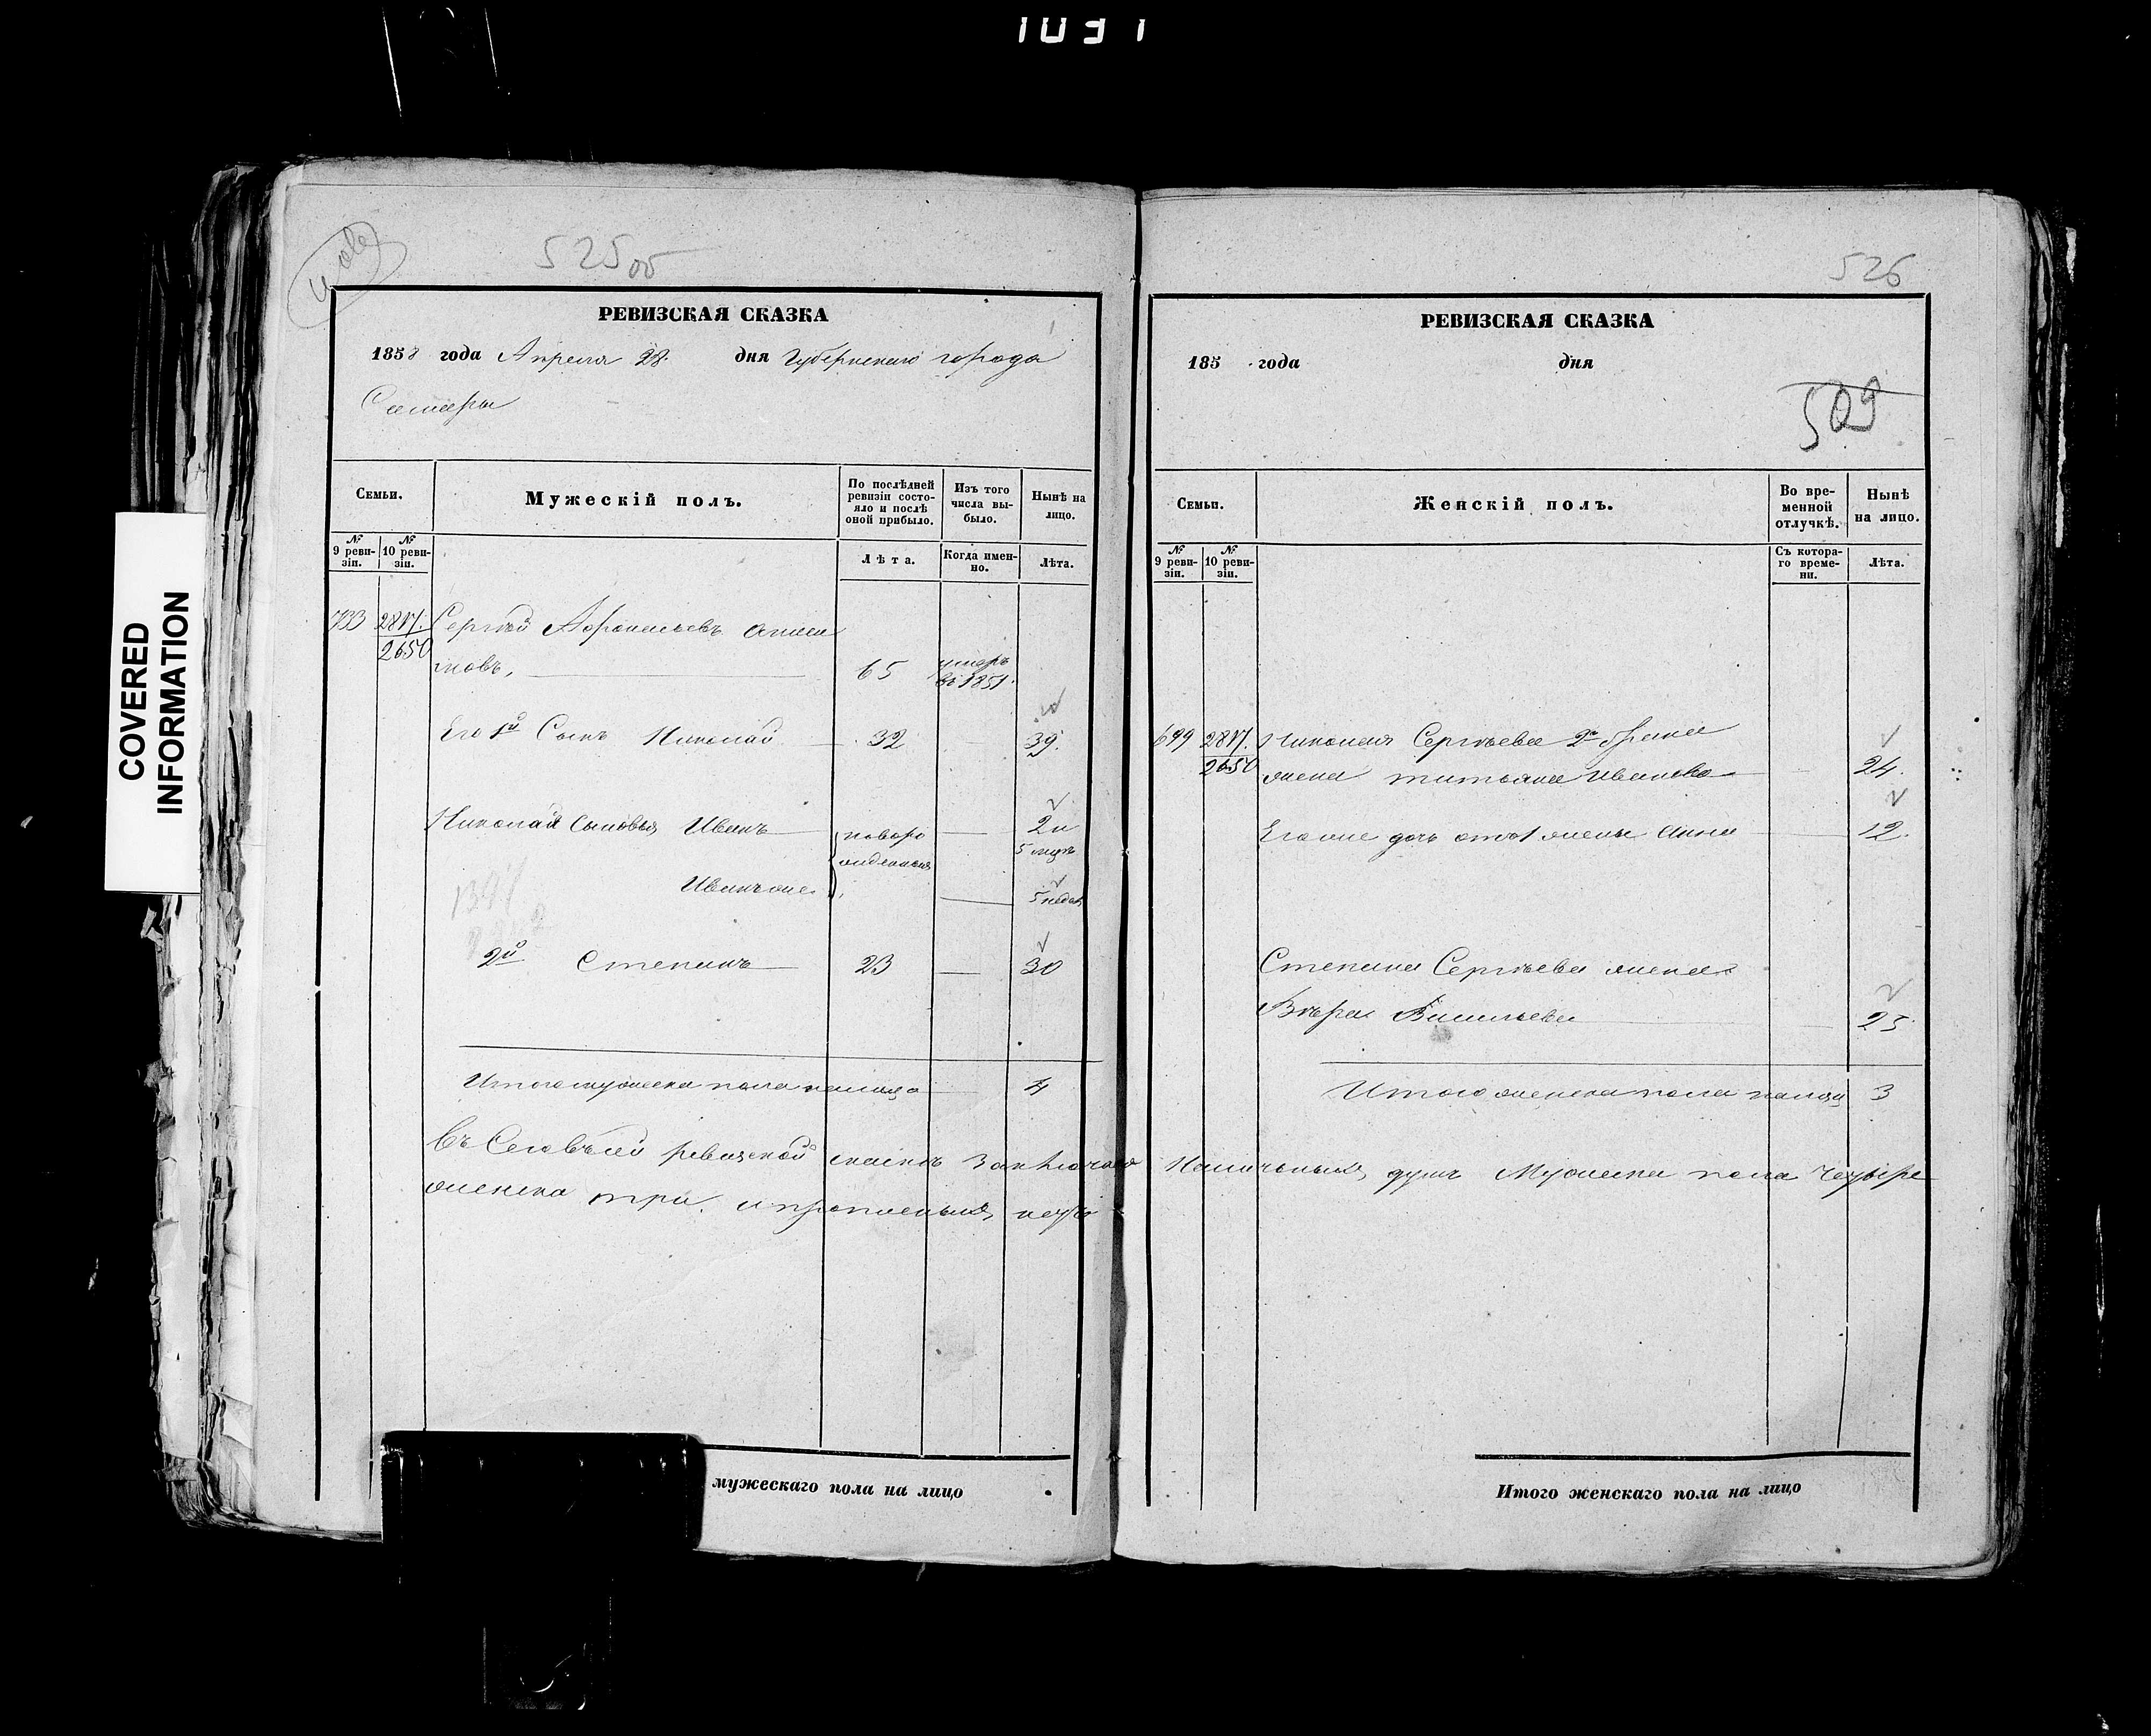 1031
COVERED
INFORMATION
525 об
РЕВИЗСКАЯ СКАЗКА
1858 года Апреля 28. дня Губернскаго города
Самары
Семьи.
Мужескій полъ.
По послѣдней ревизіи состояло и послѣ оной прибыло.
Изъ того числа выбыло.
Нынѣ на лицо.
№ 9 ревизіи.
№ 10 ревизіи.
Лѣта.
Когда именно.
Лѣта.
733 2817. Сергѣй Афонасьевъ
2650 65 умеръ въ 1851.
Его 1й Сынъ Николай 32 39.
Николая Сыновья Иванъ новорожденныя 2 и 5 мцъ
Иванъ же 5 недѣл
2й Степанъ 23 30
Итого мужеска пола налицо 4
526
РЕВИЗСКАЯ СКАЗКА
185 года дня
509
Семьи.
Женскій полъ.
Во временной отлучкѣ.
Нынѣ на лицо.
№ 9 ревизіи.
№ 10 ревизіи.
Съ котораго времени.
Лѣта.
699 2817. Николая Сергѣева 2го брака
2650 жена Татьяна Иванова 24.
Его же дочь отъ 1 жены Анна 12.
Степана Сергѣева жена
Вѣра Васильева 25.
Итого женска пола налицо 3
Въ Сей ревизской сказкѣ Заключено Наличныхъ душъ Мужеска пола Четыре
женска три. и прописныхъ нетъ
мужескаго пола на лицо
Итого женскаго пола на лицо